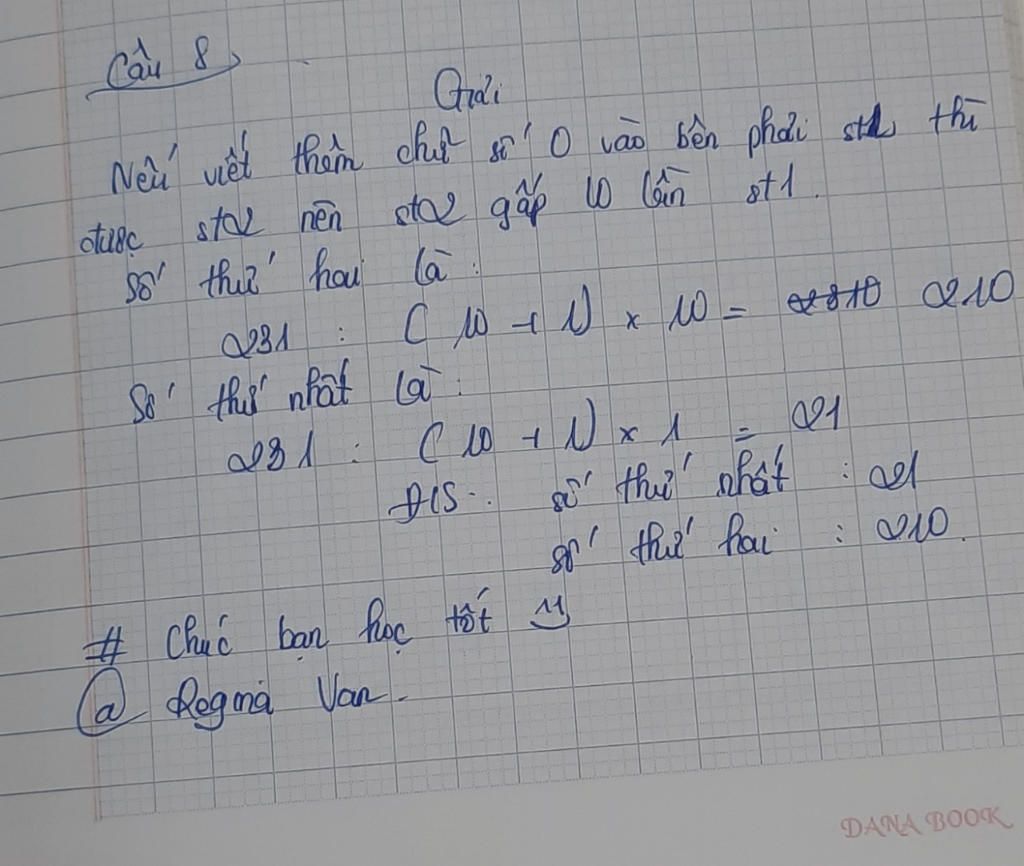 Câu 8
Giải
Nếu viết thêm chữ số 0 vào bên phải st1 thì
được st2 nên st2 gấp 10 lần st1.
Số thứ hai là:
231 : (10 + 1) × 10 = 210
Số thứ nhất là:
231 : (10 + 1) × 1 = 21
Đ/S: số thứ nhất : 21
số thứ hai : 210.
# Chúc bạn học tốt
@ Regina Van.
DANA BOOK